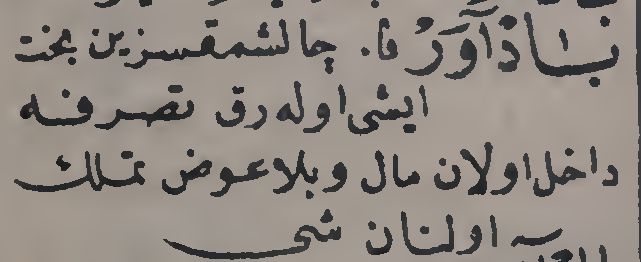 باذآوَرْ فا. چالشمقسزين بخت
ايشى اوله رق تصرفنه
داخل اولان مال وبلاعوض تملك
اولنان شى